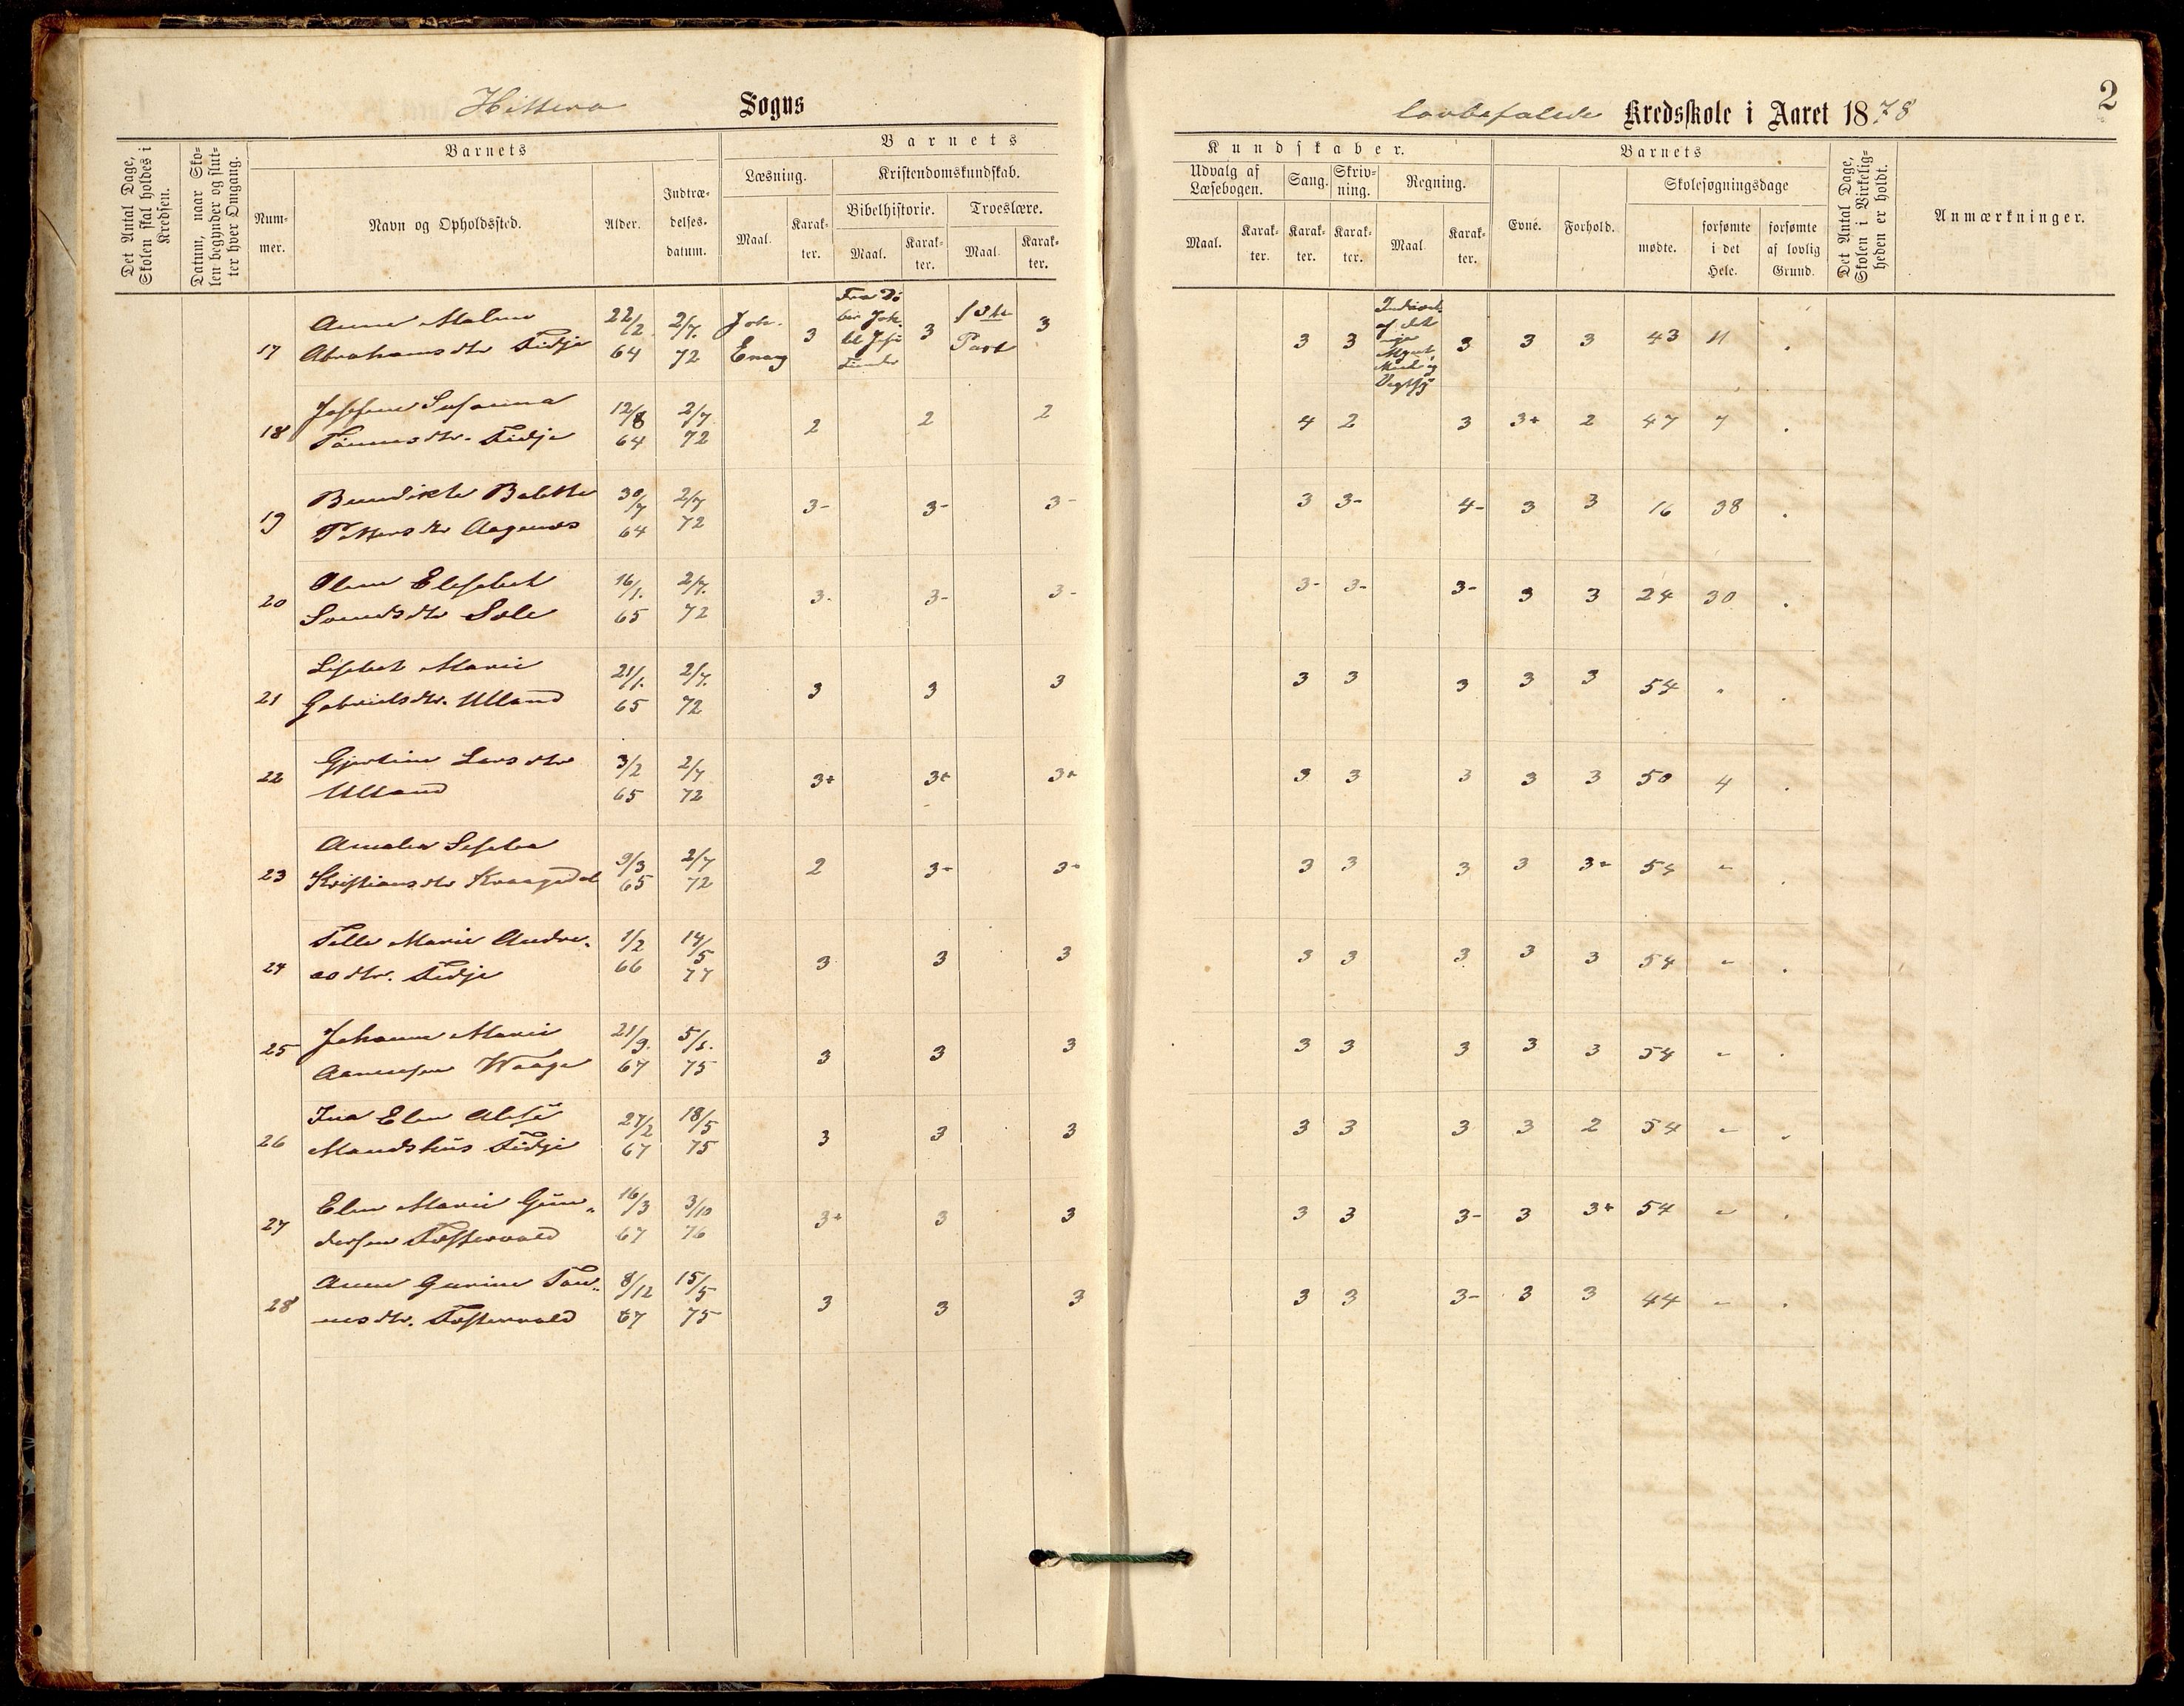 2
Hitterø Sogns
lovbefalede Kredsskole i Aaret 1878
Det Antal Dage, Skolen skal holdes i Kredsen.
Datum, naar Skolen begynder og slutter hver Omgang.
Barnets
Nummer.
Navn og Opholdssted.
Alder.
Indtrædelses-datum.
Barnets
Kundskaber.
Læsning.
Maal.
Karakter.
Kristendomskundskab.
Bibelhistorie.
Maal.
Karakter.
Troeslære.
Maal.
Karakter.
Udvalg af Læsebogen.
Maal.
Karakter.
Sang.
Karakter.
Skrivning.
Karakter.
Regning.
Maal
Karakter.
Barnets
Evne.
Forhold.
Skolesøgningsdage
mødte.
forsømte i det Hele.
forsømte af lovlig Grund.
Det Antal Dage, Skolen i Virkeligheden er holdt.
Anmærkninger.
17 Anne Malene 22/2 2/7. Joh. 3 3 3 3 3 3 3 3 43 11 .
Abrahamsdtr Fidje 64 72 Evang Part
18 Josefine Susanna 12/8 2/7 2 2 2 4 2 3 3+ 2 47 7 .
Tønnesdtr. Fidje 64 72
19 Bendikte Balette 30/7 2/7 3- 3- 3- 3 3- 4- 3 3 16 38 .
Pettersdtr Aagenæs 64 72
20 Olene Elisabet 16/1. 2/7. 3- 3- 3- 3- 3- 3- 3 3 24 30 .
Svendsdtr Sole 65 72
21 Lisabet Marie 21/1. 2/7. 3 3 3 3 3 3 3 3 54 . .
Gabrielsdtr. Ulland 65 72
22 Gjertine Larsdtr 3/2 2/7 3+ 3+ 3+ 3 3 3 3 3 50 4 .
Ulland 65 72
23 Amalia 9/3 2/7 2 3+ 3+ 3 3 3 3 3+ 54 - .
Kristiansdtr Kraagedal 65 72
24 Tella Marie Andre- 1/2 14/5 3 3 3 3 3 3 3 3 54 - .
asdtr. Fidje 66 77
25 Johanne Marie 21/9. 5/1. 3 3 3 3 3 3 3 3 54 - .
Aanensen Waage 67 75
26 Ina Elen 27/2 18/5 3 3 3 3 3 3 3 2 54 - .
Mandshus Fidje 67 75
27 Elen Marie Gun- 16/3 3/10 3+ 3 3 3 3 3- 3 3+ 54 - .
dersen 67 76
28 Anne Gurine Tøn- 8/12 15/5 3 3 3 3 3 3- 3 3 44 - .
nesdtr. 67 75